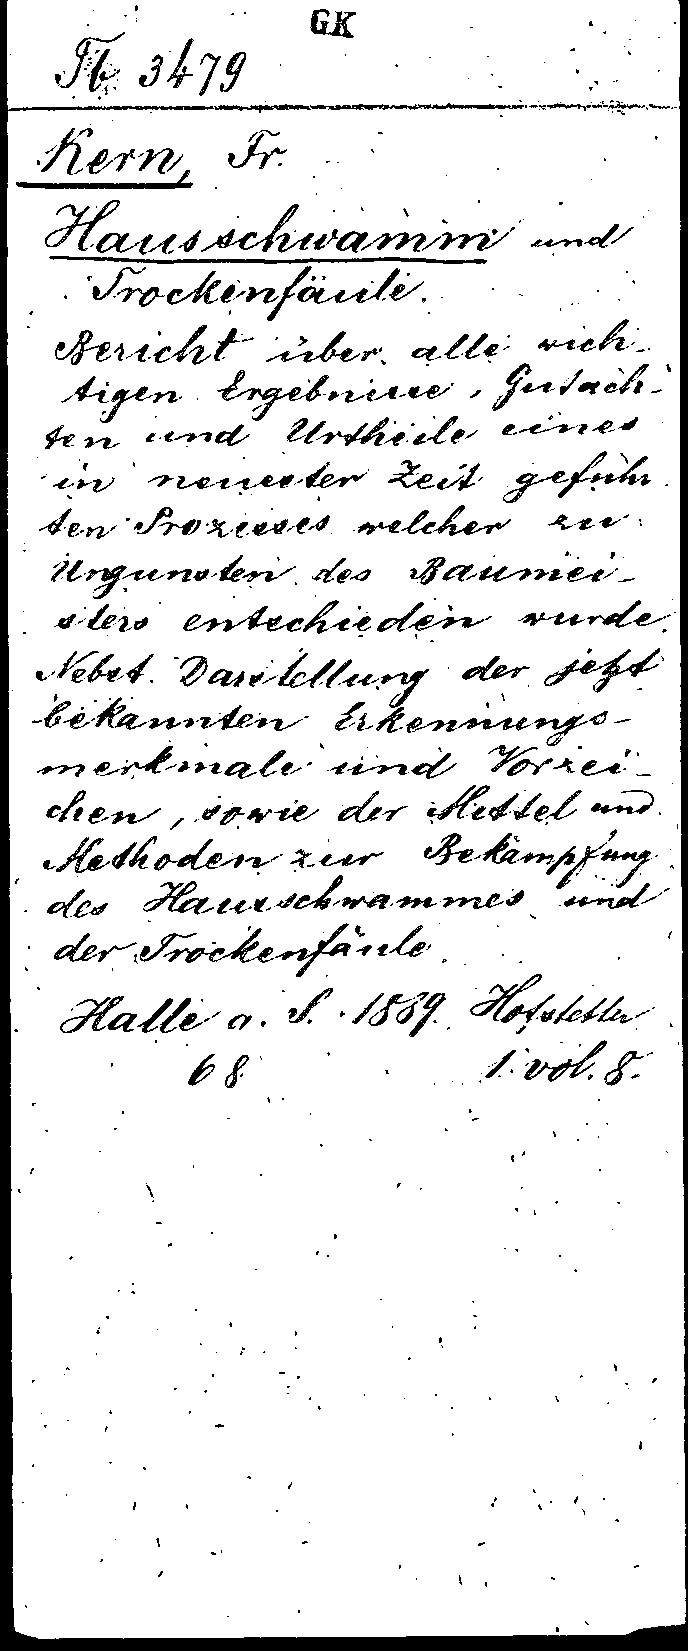 GK
Tb 3479
Kern, Fr.
Hausschwamm und
Trockenfäule.
Bericht über alle wich-
tigen Ergebnisse, Gutach-
ten und Urtheile eines
in neuester Zeit geführ
ten Prozesses welcher zu
Ungunsten des Baumei-
sters entschieden wurde.
Nebst Darstellung der jetzt
bekannten Erkennungs-
merkmale und Vorzei-
chen, sowie der Mittel und
Methoden zur Bekämpfung
des Hausschwammes und
der Trockenfäule.
Halle a. S. 1889. Hofstetter
68 1 vol. 8.